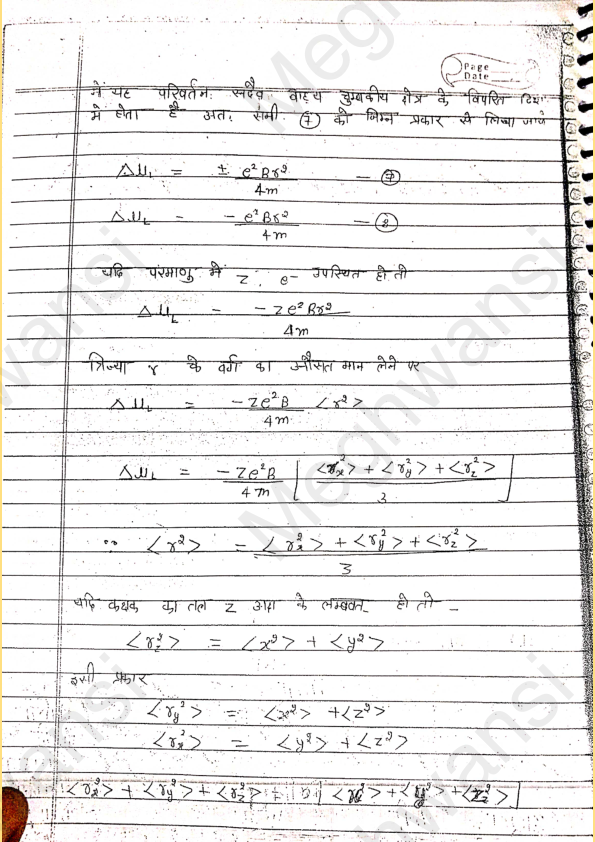 Page
Date
में यह परिवर्तन सदैव वाह्य चुम्बकीय क्षेत्र के विपरित दिशा
मे होता है अतः समी. ⑦ को निम्न प्रकार से लिखा जाये
Δμ_L = ± e²Br²/4m — ⑦
Δμ_L = - e²Br²/4m — ⑧
यदि परमाणु में Z, e⁻ उपस्थित हो तो
Δμ_L = -Ze²Br²/4m
त्रिज्या r के वर्ग का औसत मान लेने पर
Δμ_L = -Ze²B/4m <r²>
Δμ_L = -Ze²B/4m [<r_x²> + <r_y²> + <r_z²>/3]
∵ <r²> = <r_x²> + <r_y²> + <r_z²>/3
यदि कक्षक का तल Z अक्ष के लम्बवत् हो तो -
<r_z²> = <x²> + <y²>
इसी प्रकार
<r_y²> = <x²> + <z²>
<r_x²> = <y²> + <z²>
<r_x²> + <r_y²> + <r_z²>
Meghwansi